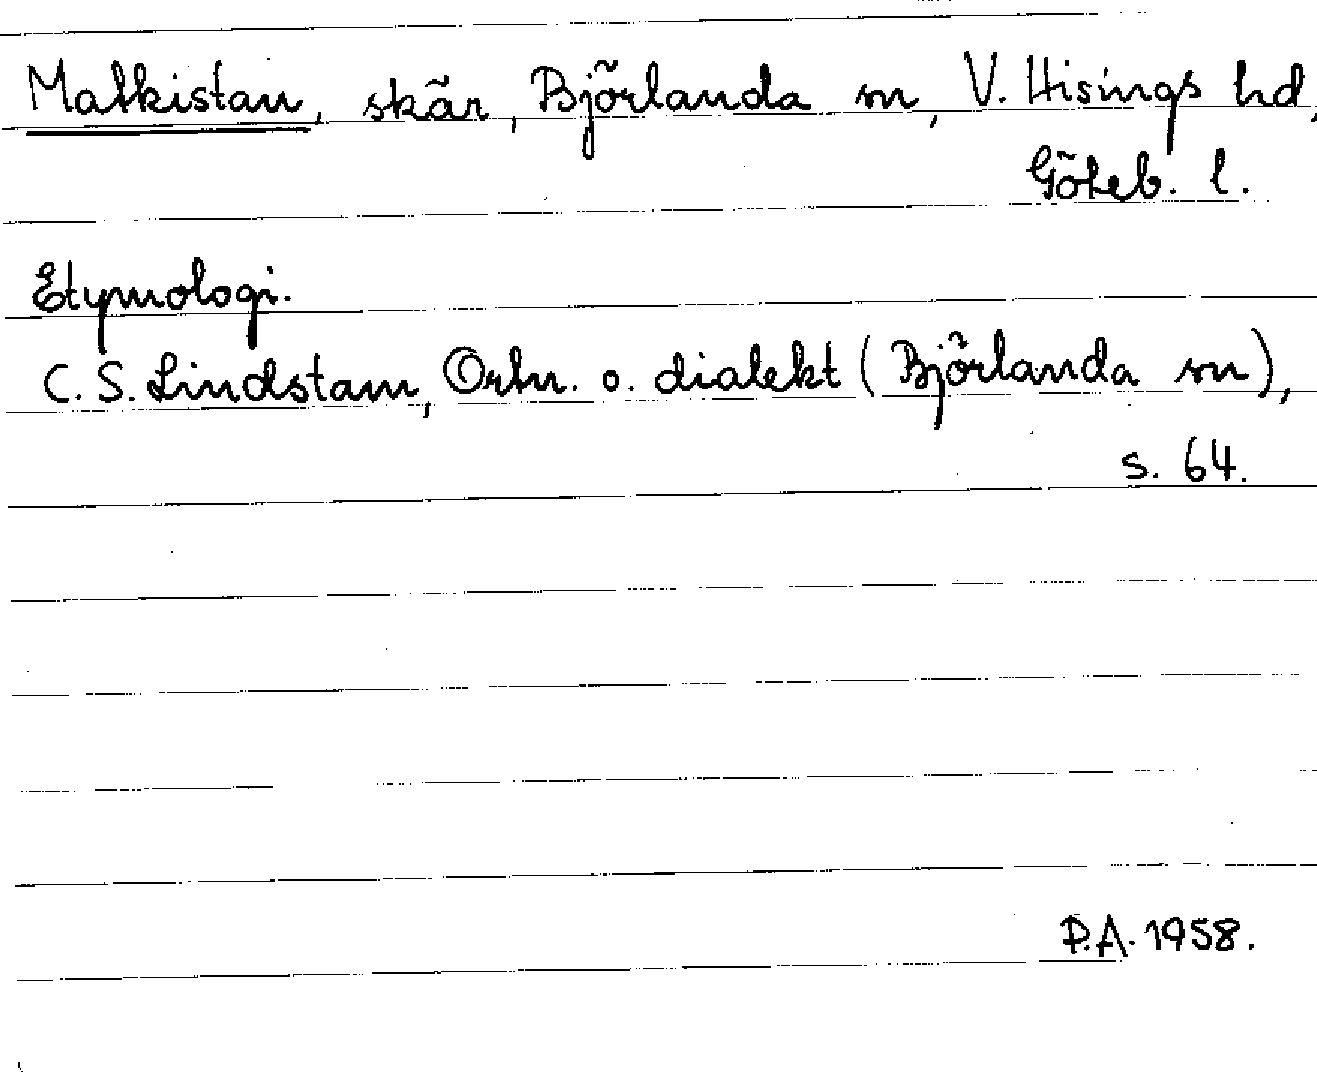 Matkistan, skär, Björlanda sn, V. Hisings hd,
Göteb. l.
Etymologi.
C. S. Lindstam, Ortn. o. dialekt (Björlanda sn),
s. 64.
P.A. 1958.